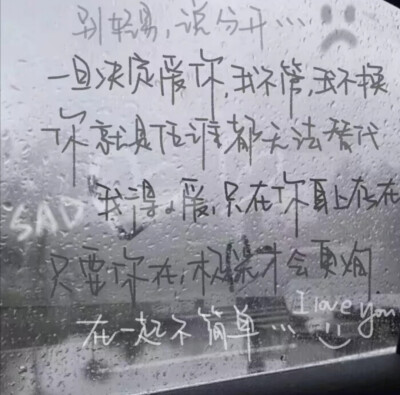 别轻易，说分开...
一旦决定爱你，我不管，我不换
你就是任谁都无法替代
SAD
我得爱，只在你身上存在
只要你在，
才会
在一起不简单...
I love you